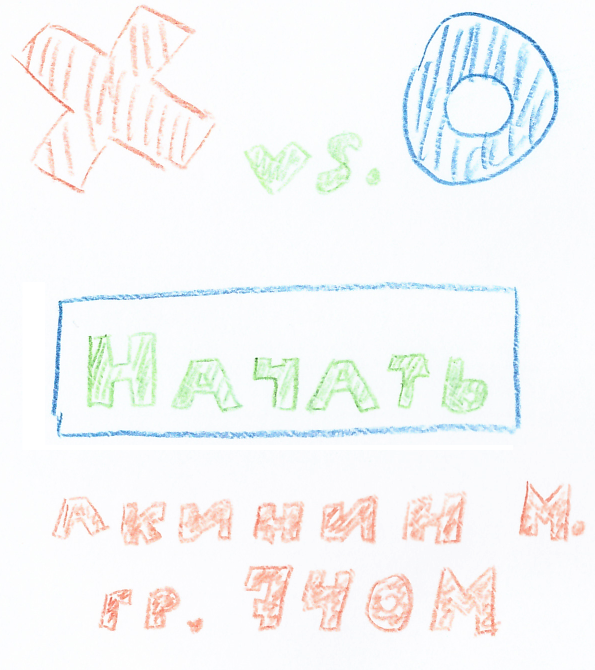 X vs. O
Начать
Акинин М.
гр. 740М